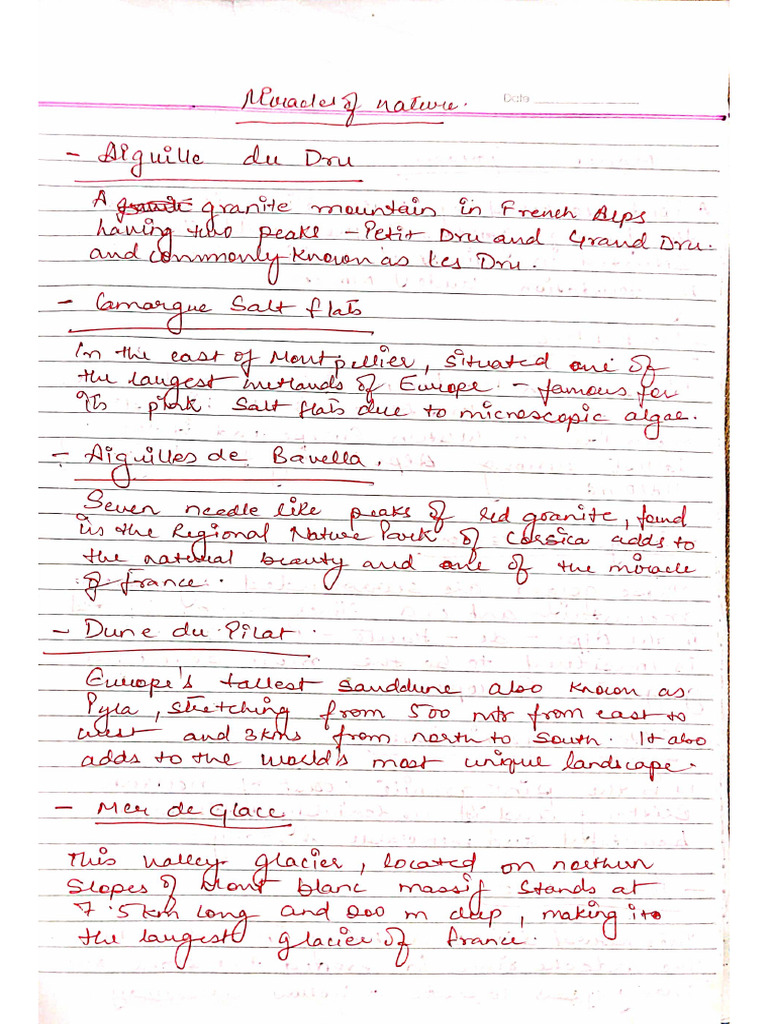 Miracles of nature.
Date
- Aiguille du Dru
A granite granite mountain in French Alps
having two peaks - Petit Dru and Grand Dru.
and commonly known as Les Dru.
- Camargue Salt flats
In the east of Montpellier, situated one of
the largest wetlands of Europe - famous for
its pink Salt flats due to microscopic algae.
- Aiguilles de Bavella.
Seven needle like peaks of red granite, found
in the Regional Nature Park of Corsica adds to
the natural beauty and one of the miracle
of france.
- Dune du Pilat.
Europe's tallest sanddune also known as
Pyla, stretching from 500 mtr from east to
west and 3kms from north to South. It also
adds to the world's most unique landscape.
- Mer de Glace
This valley glacier, located on northern
slopes of Mont blanc massif stands at
7.5km long and 200 m deep, making it
the largest glacier of france.